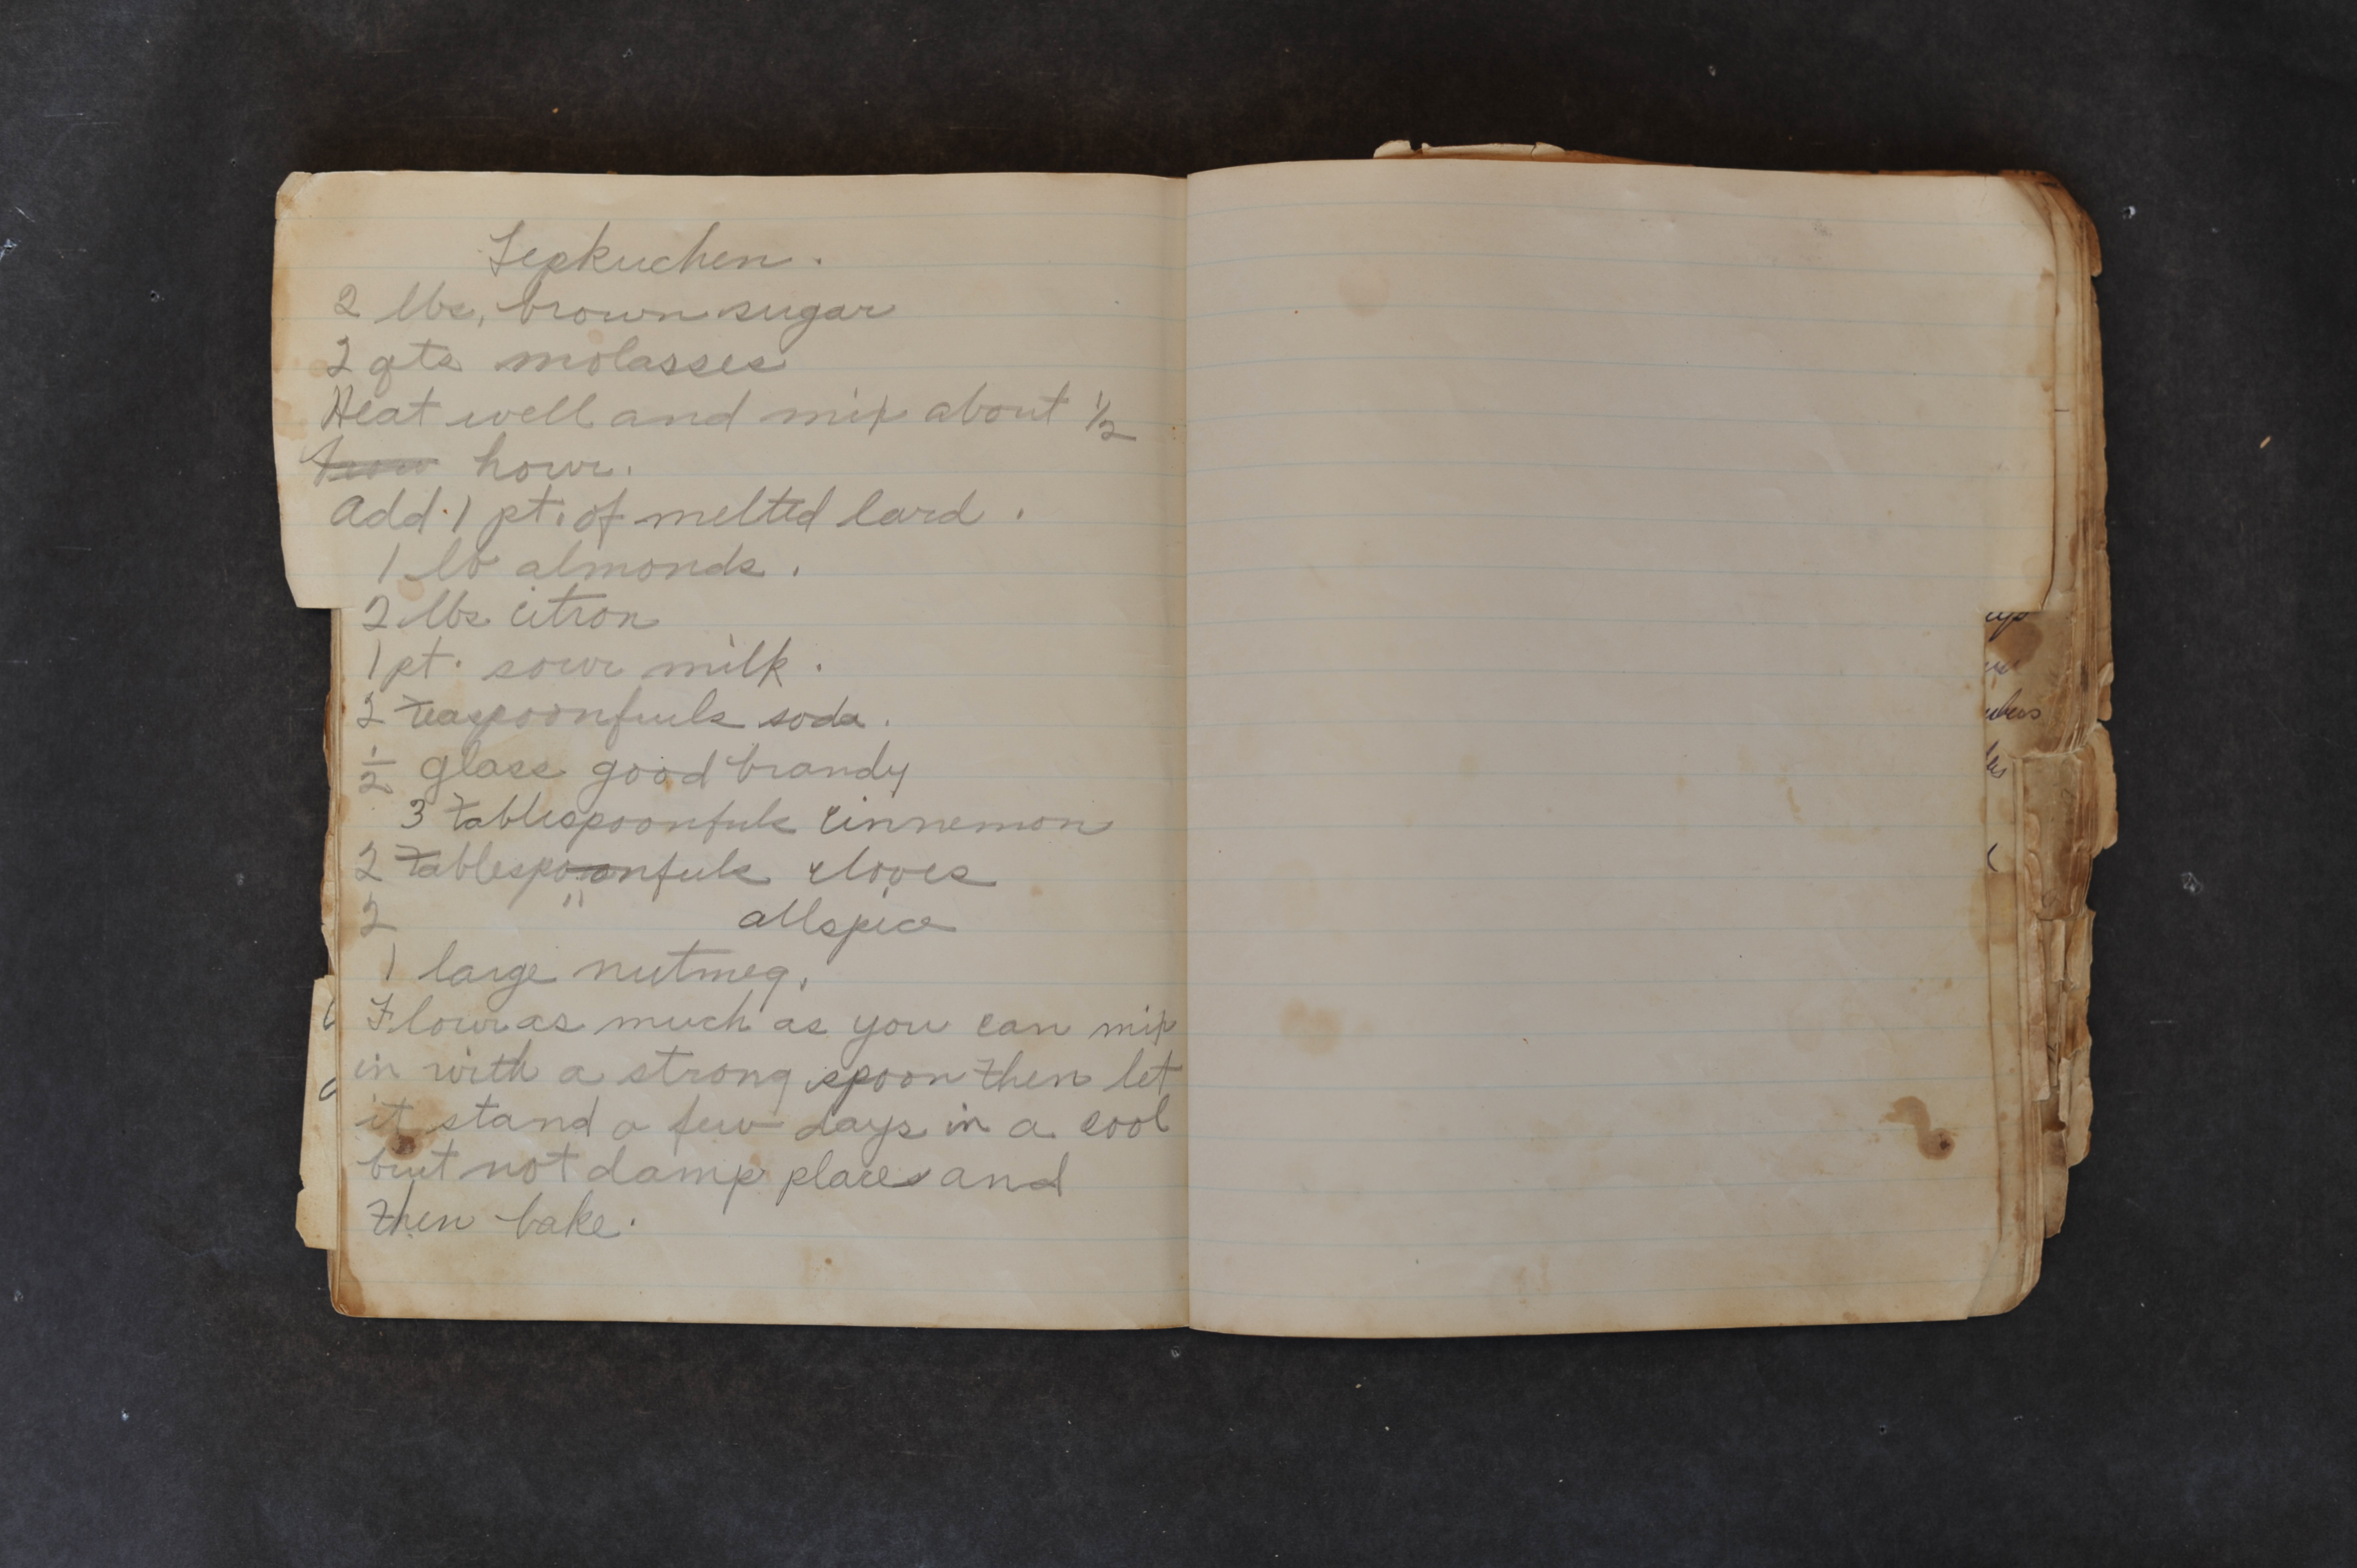 Lepkuchen.
2 lbs, brown sugar
2 qts molasses
Heat well and mix about 1/2
hour.
Add 1 pt. of melted lard.
1 lb almonds.
2 lbs citron
1 pt. sour milk.
2 teaspoonfuls soda.
1/2 glass good brandy
3 tablespoonfuls cinnemon
2 tablespoonfuls cloves
2 " allspice
1 large nutmeg.
Flour as much as you can mix
in with a strong spoon then let
it stand a few days in a cool
but not damp place and
then bake.